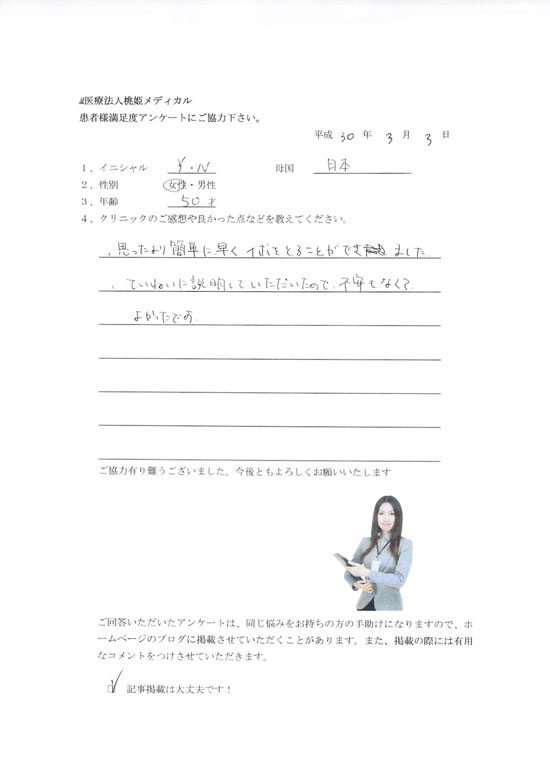 医療法人桃姫メディカル
患者様満足度アンケートにご協力下さい。
平成 30 年 3 月 3 日
1、イニシャル Y・N 母国 日本
2、性別 女性・男性
3、年齢 50才
4、クリニックのご感想や良かった点などを教えてください。
、思ったより簡単に早くイボをとることができました
、ていねいに説明していただいたので、不安もなくて
よかったです
ご協力有り難うございました。今後ともよろしくお願いいたします
ご回答いただいたアンケートは、同じ悩みをお持ちの方の手助けになりますので、ホ
ームページのブログに掲載させていただくことがあります。また、掲載の際には有用
なコメントをつけさせていただきます。
☑ 記事掲載は大丈夫です！